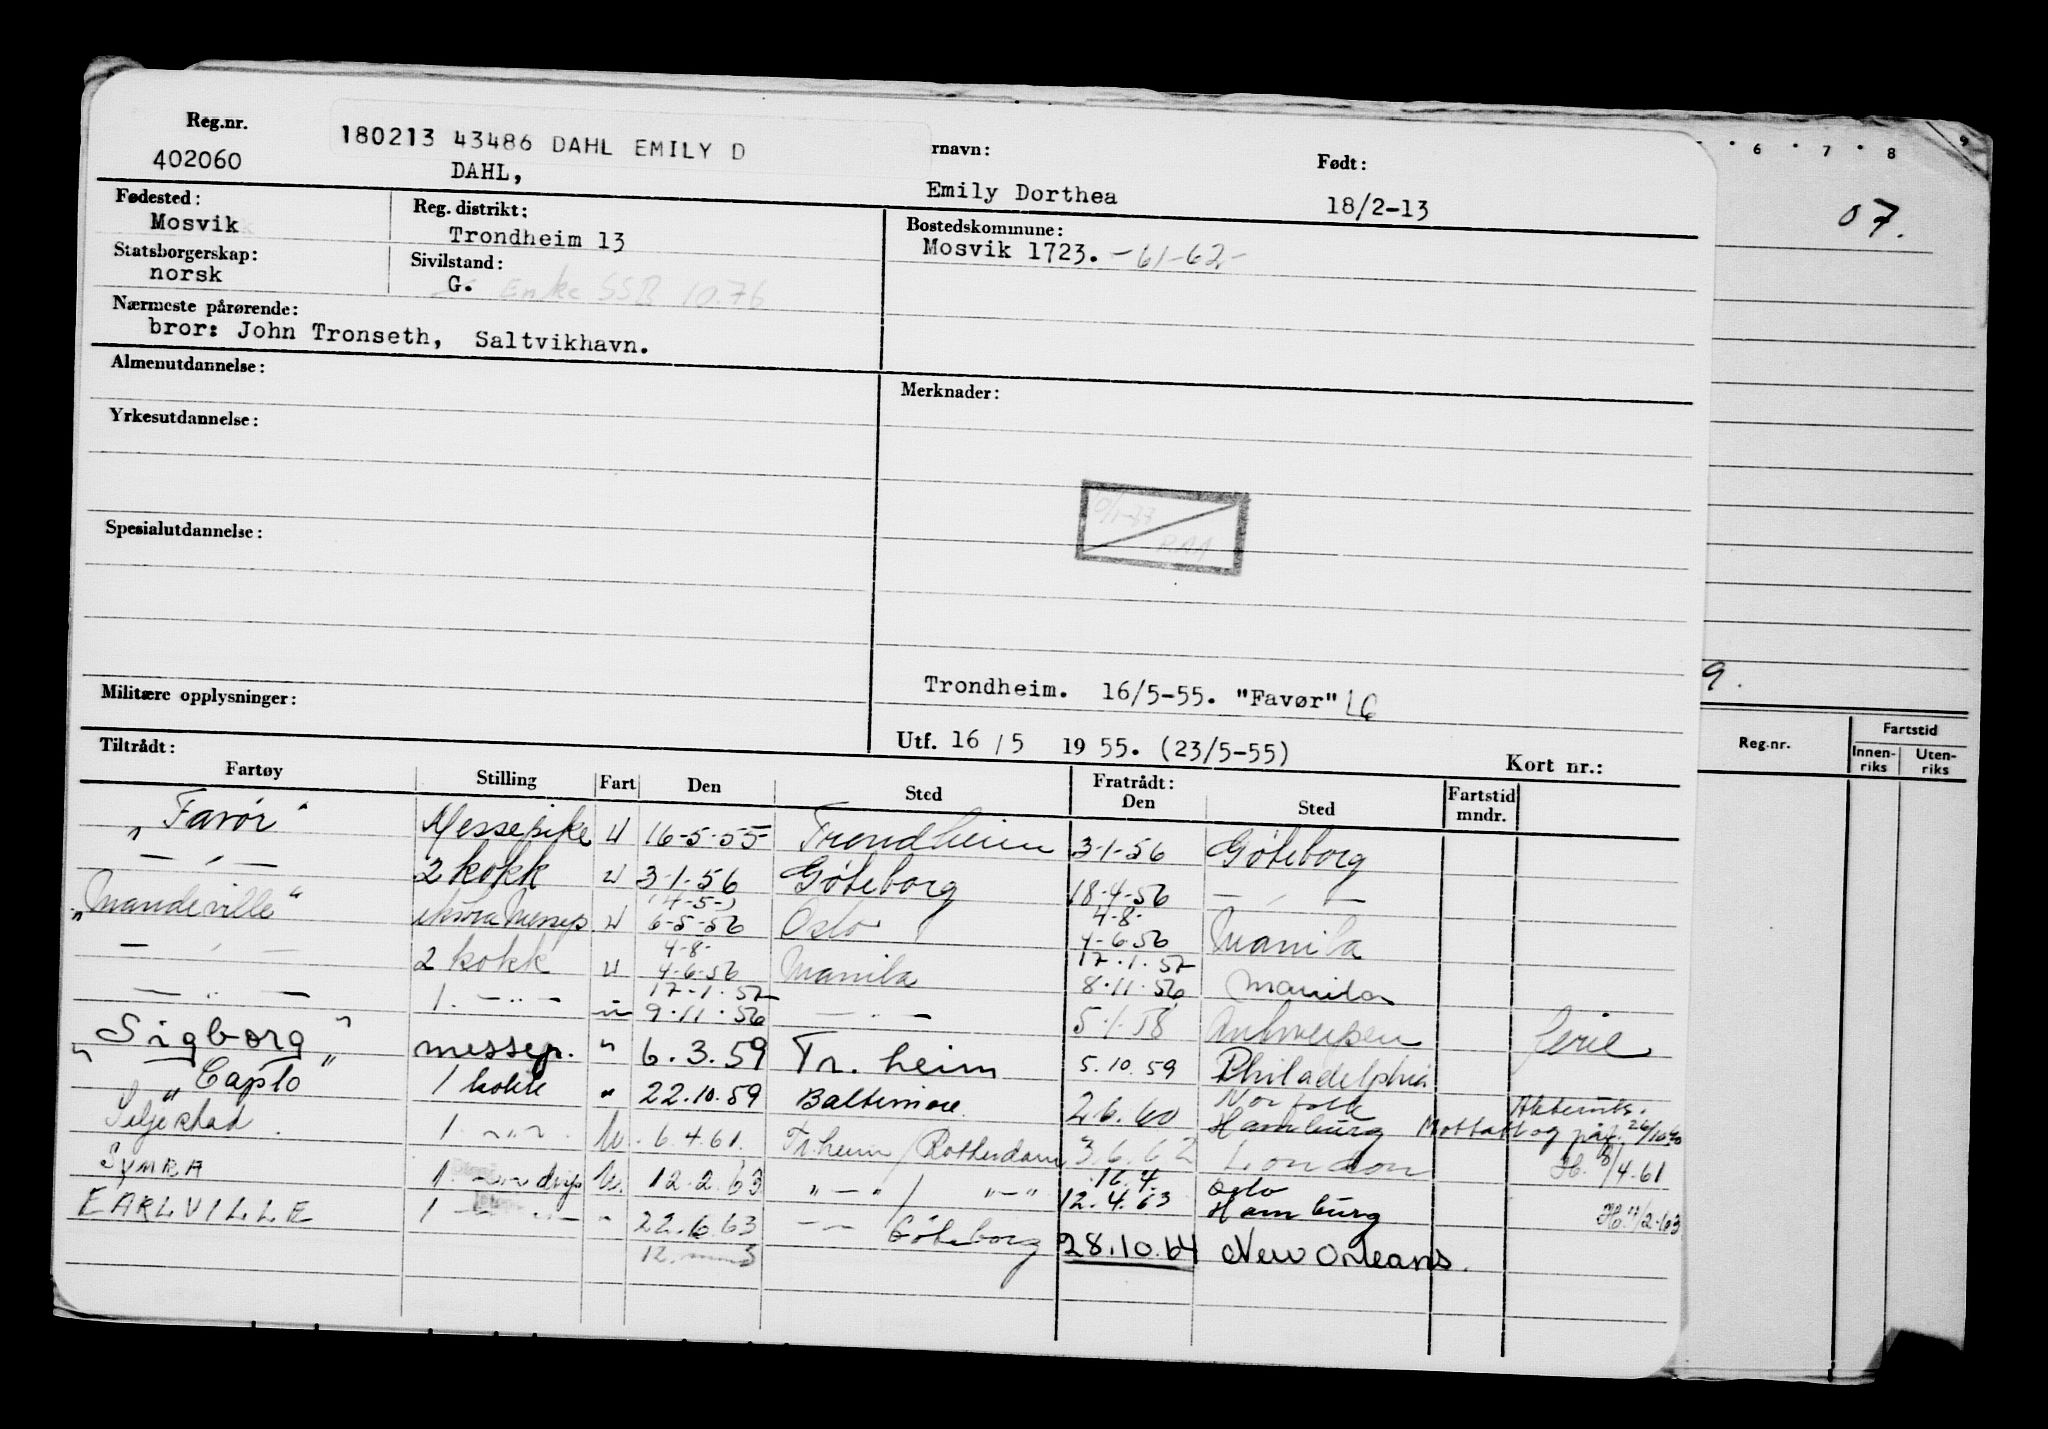 Reg.nr. 180213 43486 DAHL EMILY D rnavn: Født:
402060 DAHL, Emily Dorthea 18/2-13
Fødested: Reg. distrikt: Bostedskommune:
Mosvik Trondheim 13 Mosvik 1723. -61-62-
Statsborgerskap: Sivilstand:
norsk G. Enke SSB 10.76
Nærmeste pårørende:
bror: John Tronseth, Saltvikhavn.
Almenutdannelse: Merknader:
Yrkesutdannelse:
Spesialutdannelse:
Trondheim. 16/5-55. "Favør"
Militære opplysninger:
Utf. 16/5 1955. (23/5-55) Kort nr.:
Tiltrådt: Fratrådt:
Fartøy Stilling Fart Den Sted Den Sted Fartstid mndr.
"Favör" Messepike U 16-5-55 Trondheim 3-1-56 Göteborg
— " — 2 kokk U 3-1-56 Göteborg 18-4-56 — " —
"Mandeville" U 6-5-56 Oslo 4-8- 4-6-56 Manila
— " — 2 kokk U 4-8- 4-6-56 Manila 17-1-57 8-11-56 Manila
— " — 1. — " — 17-1-57 9-11-56 — " — 5-1-58 Antwerpen ferie
"Sigborg" messep. " 6.3.59 Tr. heim 5.10.59 Philadelphia
"Capto" 1 kokk " 22.10.59 Baltimore 26.60 Norfolk Hamburg Mottatt og påf. 26/10 60
Siljestad 1 — " — U. 6.4.61 Tr.heim / Rotterdam 3.6.62 London 8/4.61
SYMRA 1 — " — U. 12.2.63 " — " / " — " 16.4. 12.4.63 Oslo Hamburg 11/2-63
EARLVILLE 1 — " — " 22.6.63 — — Göteborg 28.10.64 New Orleans.
6 7 8 9
07.
9.
Reg.nr. Fartstid
Innenriks Utenriks